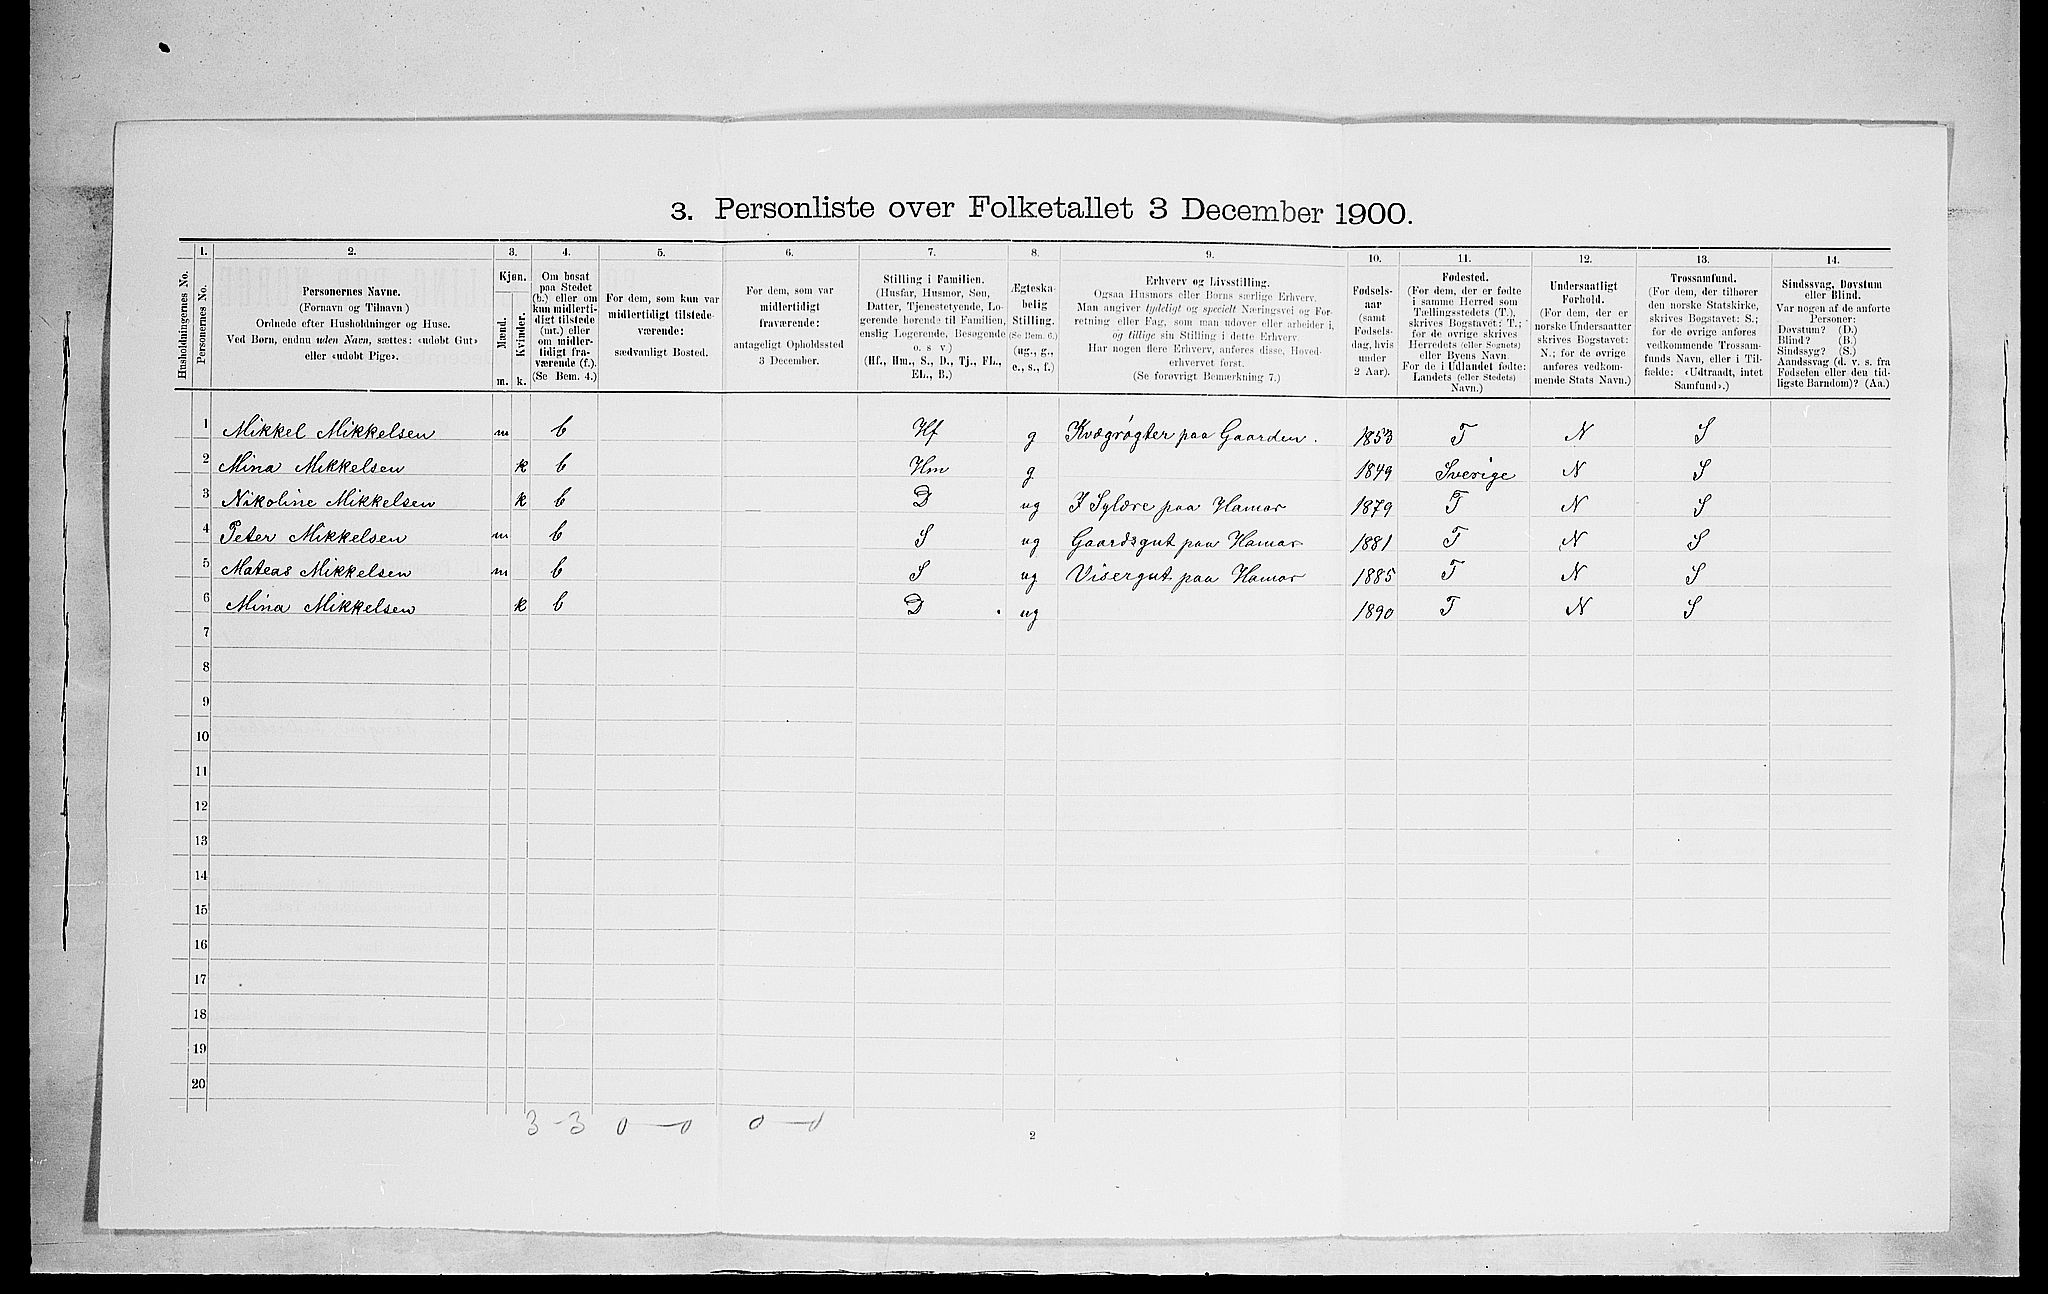 3. Personliste over Folketallet 3 December 1900.
1. 2. 3. 4. 5. 6. 7. 8. 9. 10. 11. 12. 13. 14.
Husholdningernes No.
Personernes No.
Personernes Navne.
(Fornavn og Tilnavn)
Ordnede efter Husholdninger og Huse.
Ved Børn, endnu uden Navn, sættes: «udøbt Gut»
eller «udøbt Pige».
Kjøn.
Mænd.
Kvinder.
m. k.
Om bosat
paa Stedet
(b.) eller om
kun midlerti-
digt tilstede
(mt.) eller
om midler-
tidigt fra-
værende (f.).
(Se Bem. 4.)
For dem, som kun var
midlertidigt tilstede-
værende:
sædvanligt Bosted.
For dem, som var
midlertidigt
fraværende:
antageligt Opholdssted
3 December.
Stilling i Familien.
(Husfar, Husmor, Søn,
Datter, Tjenestetyende, Lo-
gerende hørende til Familien,
enslig Logerende, Besøgende
o. s. v.)
(Hf., Hm., S., D., Tj., FL.,
EL., B.)
Ægteska-
belig
Stilling.
(Se Bem. 6.)
(ug., g.,
e., s., f.)
Erhverv og Livsstilling.
Ogsaa Husmors eller Børns særlige Erhverv.
Man angiver tydeligt og specielt Næringsvei og For-
retning eller Fag, som man udøver eller arbeider i,
og tillige sin Stilling i dette Erhverv.
Har nogen flere Erhverv, anføres disse, Hoved-
erhvervet først.
(Se forøvrigt Bemærkning 7.)
Fødsels-
aar
(samt
Fødsels-
dag, hvis
under
2 Aar).
Fødested.
(For dem, der er fødte
i samme Herred som
Tællingsstedets (T.),
skrives Bogstavet: T.;
for de øvrige skrives
Herredets (eller Sognets)
eller Byens Navn.
For de i Udlandet fødte:
Landets (eller Stedets)
Navn.)
Undersaatligt
Forhold.
(For dem, der er
norske Undersaatter
skrives Bogstavet:
N.; for de øvrige
anføres vedkom-
mende Stats Navn.)
Trossamfund.
(For dem, der tilhører
den norske Statskirke,
skrives Bogstavet: S.;
for de øvrige anføres
vedkommende Trossam-
funds Navn, eller i Til-
fælde: «Udtraadt, intet
Samfund».)
Sindssvag, Døvstum
eller Blind.
Var nogen af de anførte
Personer:
Døvstum? (D.)
Blind? (B.)
Sindssyg? (S.)
Aandssvag (d. v. s. fra
Fødselen eller den tid-
ligste Barndom)? (Aa.)
1 Mikkel Mikkelsen m b Hf g Kvægrøgter paa Gaarden. 1853 T N S
2 Mina Mikkelsen k b Hm g 1849 Sverige N S
3 Nikoline Mikkelsen k b D ug I Sylære paa Hamar 1879 T N S
4 Peter Mikkelsen m b S ug Gaardsgut paa Hamar 1881 T N S
5 Mateas Mikkelsen m b S ug Visergut paa Hamar 1885 T N S
6 Mina Mikkelsen k b D ug 1890 T N S
7
8
9
10
11
12
13
14
15
16
17
18
19
20
3-3 0-0 0-0
2